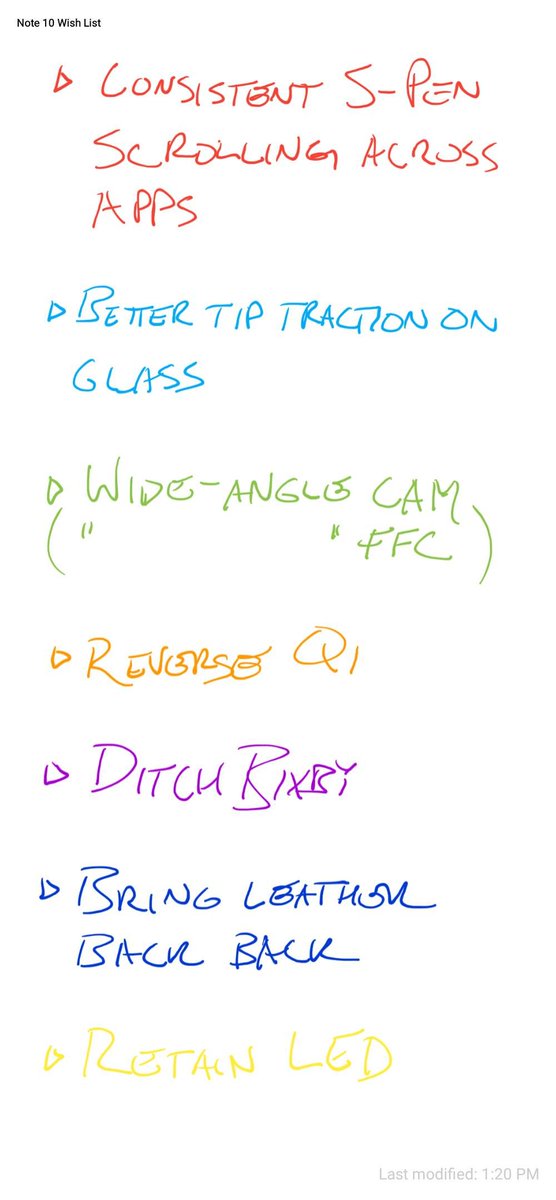 Note 10 Wish List
▷ CONSISTENT S-PEN
SCROLLING ACROSS
APPS
▷ BETTER TIP TRACTION ON
GLASS
▷ WIDE-ANGLE CAM
(" " FFC)
▷ REVERSE QI
▷ DITCH BIXBY
▷ BRING LEATHER
BACK BACK
▷ RETAIN LED
Last modified: 1:20 PM